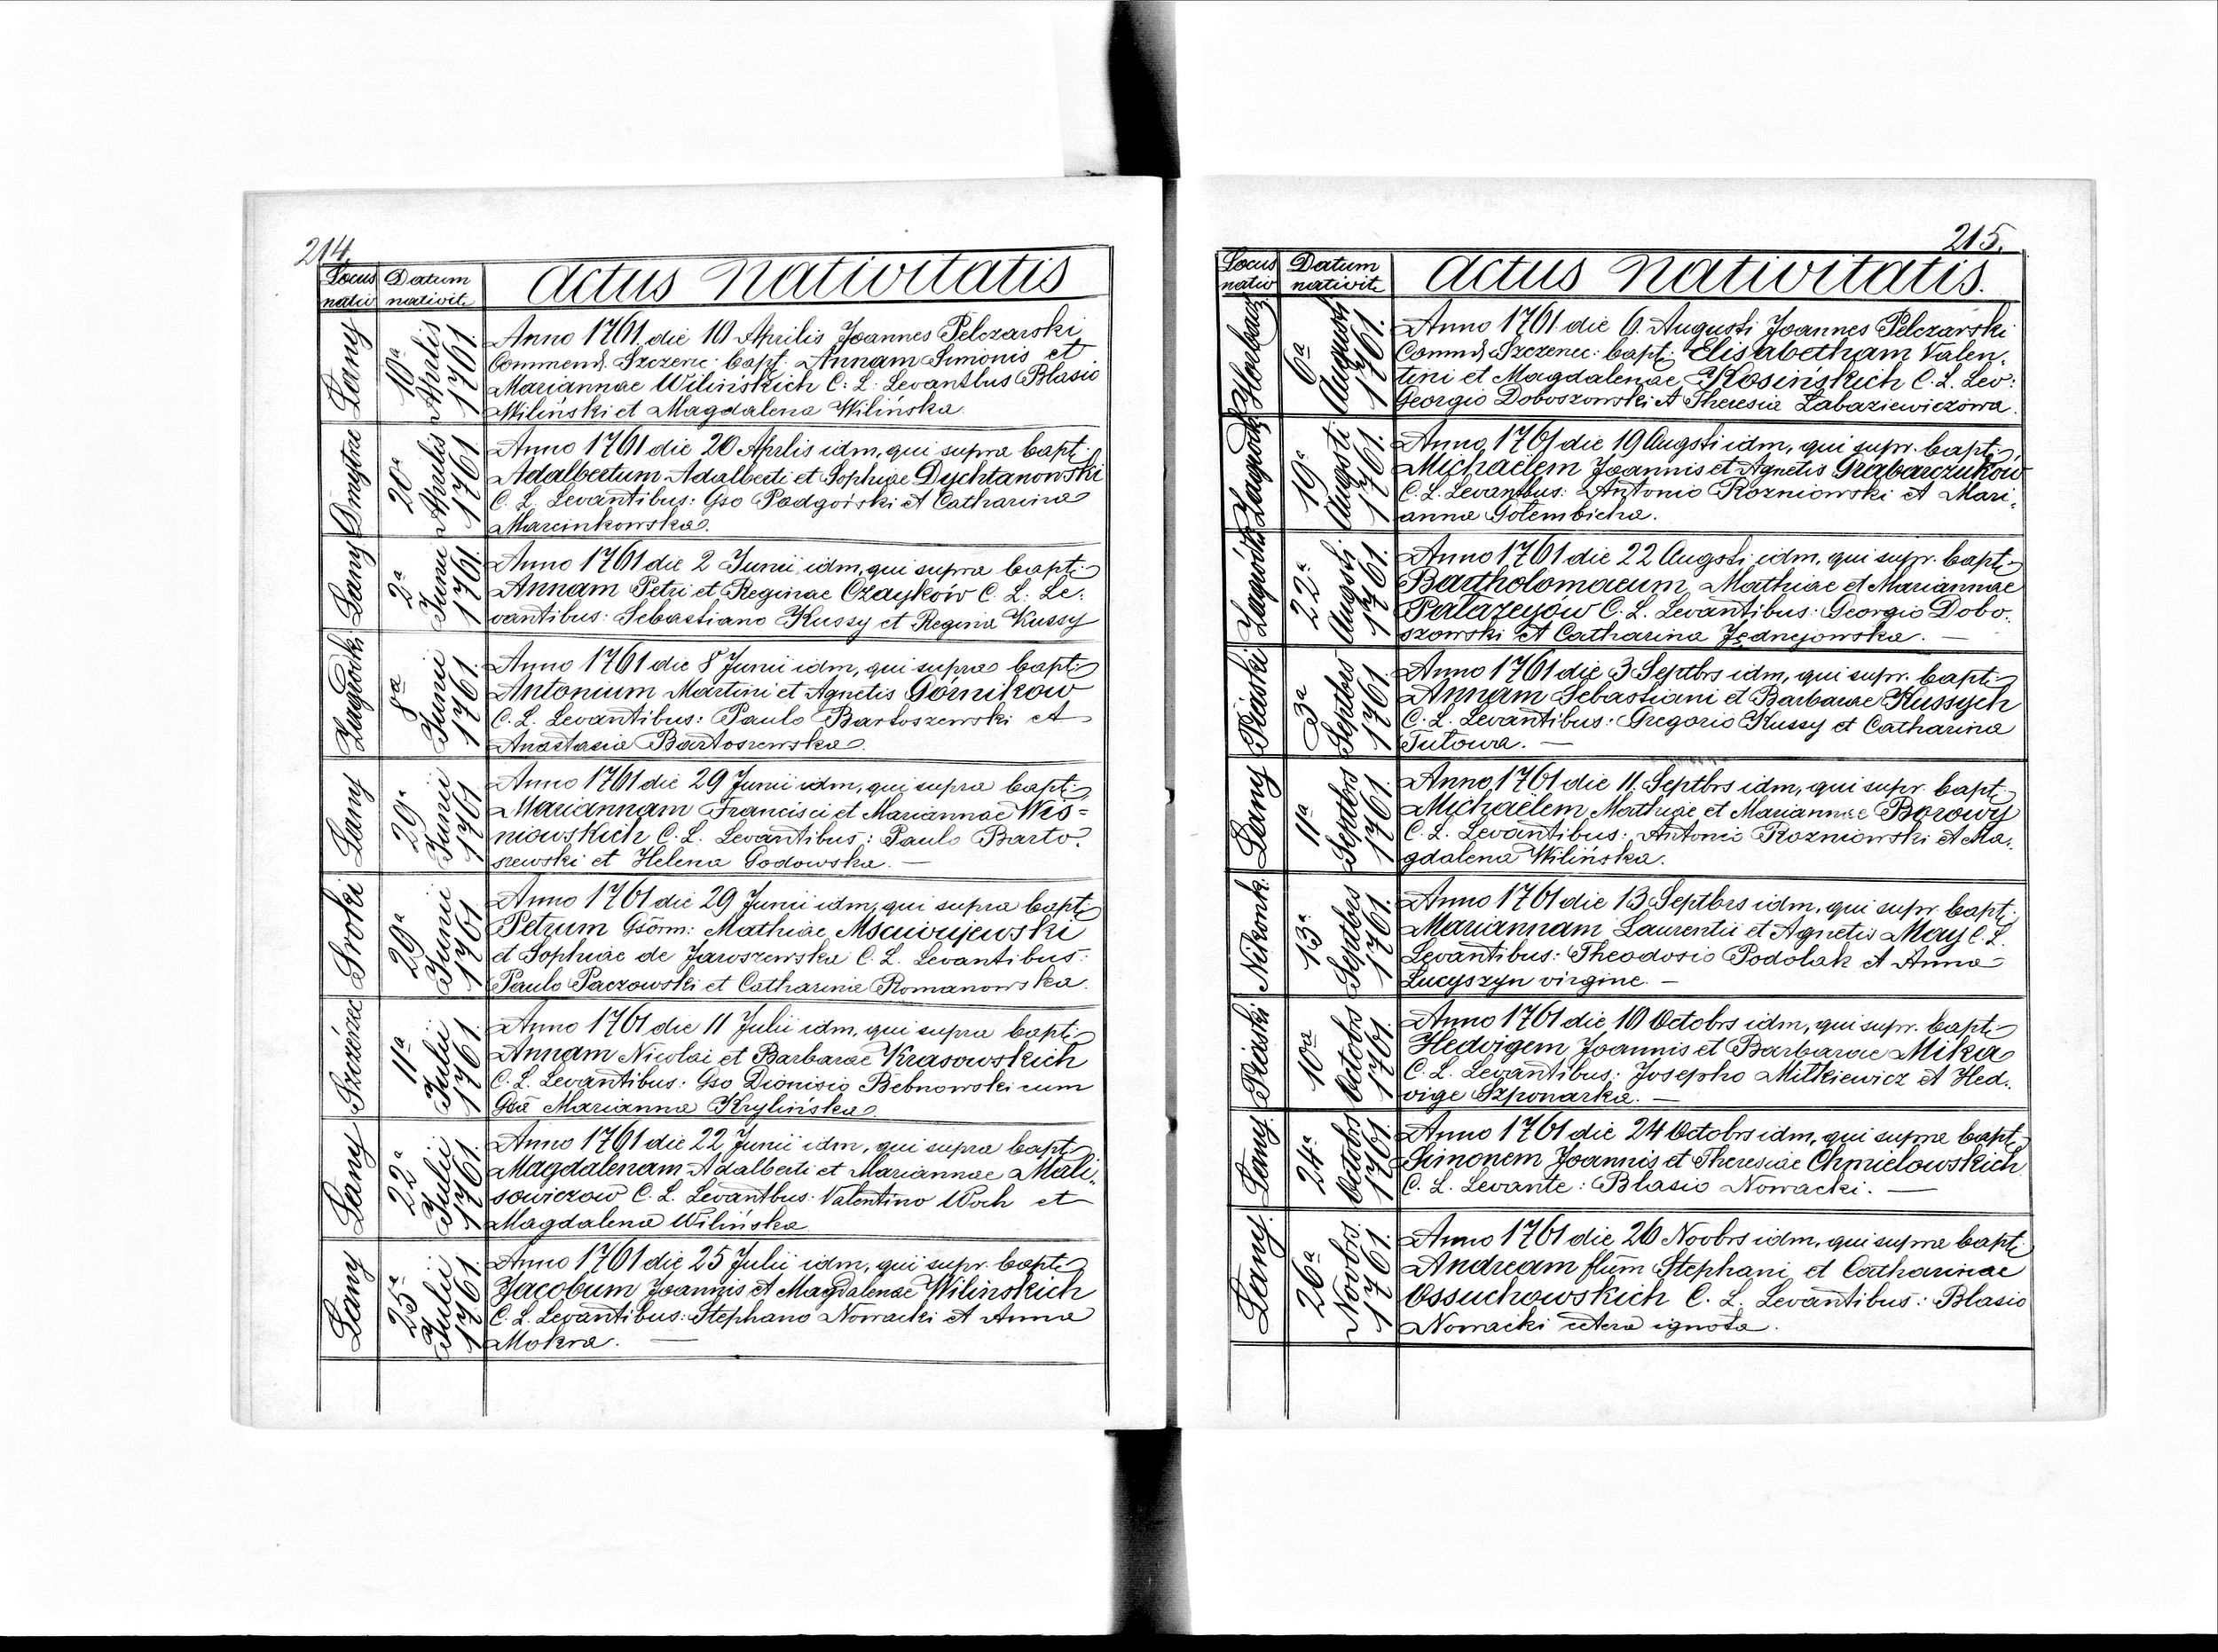 214.
Locus nativ
Datum nativit.
Actus Nativitatis
Łany
10ª Aprilis 1761.
Anno 1761 die 10 Aprilis Joannes Pelczarski
Commend. Szczerec: bapt: Annam Simonis et
Mariannae Wilińskich C: L: Levantbus Blasio
Wiliński et Magdalena Wilińska.
Dmytrze
20ª Aprilis 1761.
Anno 1761 die 20 Aprlis idm, qui supra bapt:
Adalbertum Adalberti et Sophiae Dychtanowski
C. L. Levantibus: Gso Podgórski et Catharina
Marcinkowska.
Łany
2ª Junii 1761.
Anno 1761 die 2 Junii idm, qui supra bapt:
Annam Petri et Reginae Czayków C. L. Le-
vantibus: Sebastiano Kussy et Regina Kussy
Zagródki
8ª Junii 1761.
Anno 1761 die 8 Junii idm, qui supra bapt:
Antonium Martini et Agnetis Górników
C. L. Levantibus: Paulo Bartoszewski et
Anastasia Bartoszewska.
Łany
29ª Junii 1761
Anno 1761 die 29 Junii idm, qui supra bapt:
Mariannam Francisci et Mariannae Wis=
niowskich C. L. Levantibus: Paulo Barto-
szewski et Helena Godowska. —
Sroki
29ª Junii 1761
Anno 1761 die 29 Junii idm, qui supra bapt:
Petrum Gsorm: Mathiae Msciwujewski
et Sophiae de Jaroszewska C. L. Levantibus:
Paulo Paczowski et Catharina Romanowska.
Szczérzec
11ª Julii 1761.
Anno 1761 die 11 Julii idm, qui supra bapt:
Annam Nicolai et Barbarae Krasowskich
C. L. Levantibus: Gso Dionisio Bebnowski cum
Gsa Marianna Krylińska.
Łany
22ª Julii 1761.
Anno 1761 die 22 Junii idm, qui supra bapt:
Magdalenam Adalberti et Mariannae Mali-
sowiczow C. L. Levantbus: Valentino Woch et
Magdalena Wilińska.
Łany
25ª Julii 1761.
Anno 1761 die 25 Julii idm, qui supr. bapt:
Jacobum Joannis et Magdalenae Wilinskich
C. L. Levantibus: Stephano Nowacki et Anna
Mokra. —
215.
Locus nativ
Datum nativit.
Actus Nativitatis.
6ª Augusti 1761.
Anno 1761 die 6. Augusti Joannes Pelczarski
Commd. Szczerec: bapt: Elisabetham Valen-
tini et Magdalenae Kosińskich C. L. Lev:
Georgio Doboszowski et Theresia Łabaziewiczowa.
Zagródki
19ª Augsti 1761.
Anno 1761 die 19 Augsti idm, qui supr. bapt:
Michaëlem Joannis et Agnetis Grabarczuków
C. L. Levantbus: Antonio Rozniowski et Mari-
anna Gołembicha.
Zagródki
22ª Augsti 1761.
Anno 1761 die 22 Augsti idm, qui supr. bapt:
Bartholomaeum Mathiae et Mariannae
Palazeyow C. L. Levantibus: Georgio Dobo-
szowski et Catharina Jędnejowska. —
Piaski
3ª Septbrs 1761.
Anno 1761 die 3 Septbrs idm, qui supr. bapt:
Annam Sebastiani et Barbarae Kussych
C. L. Levantibus: Gregorio Kussy et Catharina
Tutowa. —
Łany
11ª Septbrs 1761.
Anno 1761 die 11. Septbrs idm, qui supr. bapt:
Michaëlem Mathiae et Mariannae Borowy
C. L. Levantibus: Antonio Rozniowski et Ma-
gdalena Wilińska.
Nikonk.
13ª Septbrs 1761.
Anno 1761 die 13 Septbrs idm, qui supr. bapt:
Mariannam Laurentii et Agnetis May C. L.
Levantibus: Theodosio Podolak et Anna
Lucyszyn virgine. —
Piaski
10ª Octobrs 1761.
Anno 1761 die 10 Octobrs idm, qui supr. bapt:
Hedvigem Joannis et Barbarae Mika
C. L. Levantibus: Josepho Mitkiewicz et Hed-
vige Szponarka. —
Łany.
24ª Octobrs 1761.
Anno 1761 die 24 Octobrs idm, qui supra bapt:
Simonem Joannis et Theresiae Chmielowskich
C. L. Levante: Blasio Nowacki. —
Łany.
26ª Novbrs. 1761.
Anno 1761 die 26 Novbrs idm, qui supra bapt:
Andream flium Stephani et Catharinae
Ossuchowskich C. L. Levantibus: Blasio
Nowacki cetera ignota.